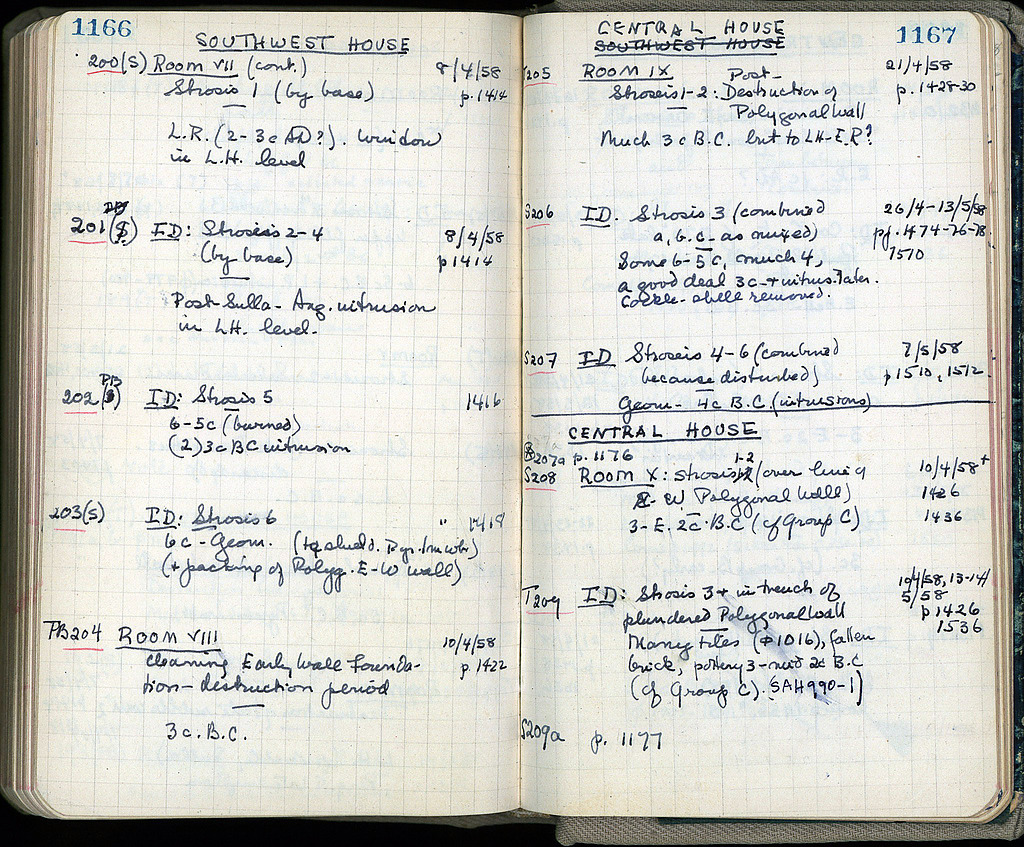 1166
SOUTHWEST HOUSE
200(S) Room VII (cont.) 8/4/58
Strosis 1 (by base) p. 1414
L.R. (2-3c AD?). Window
in L.H. level
201 (S) ID: Stroseis 2-4 8/4/58
(by base) p 1414
Post-Sulla - Aug. intrusion
in LH. level.
PB
202 ID: Strosis 5 1416
6-5c (burned)
(2) 3c BC intrusion
203(S) ID: Strosis 6 " 1418
6c - Geom.
(+ packing of Polyg. E-W wall)
PB204 ROOM VIII 10/4/58
cleaning Early wall founda- p. 1422
tion - destruction period
3c. B.C.
1167
CENTRAL HOUSE
SOUTHWEST HOUSE
T205 ROOM IX Post- 21/4/58
Stroseis 1-2: Destruction of p. 1428-30
Polygonal wall
Much 3c B.C. but to LH-E.R?
S206 ID. Strosis 3 (combined 26/4-13/5/58
a, b. c - as mixed) pp. 1474-76-78,
Some 6-5c, much 4, 1570
a good deal 3c - + intrus. later.
Cockle-shell removed.
S207 ID Stroseis 4-6 (combined 7/5/58
because disturbed) p 1510, 1512
Geom - 4c B.C. (intrusions)
CENTRAL HOUSE
207a p. 1176 1-2
S208 ROOM X: Strosis (over line of 10/4/58+
E-W Polygonal wall) 1426
3-E. 2c B.C (cf Group C) 1436
T209 ID: Strosis 3+ in trench of 10/4/58, 13-14/
plundered Polygonal wall 5/58
Many tiles (φ1016), fallen p 1426
brick, pottery 3-mid 2c B.C 1536
(cf Group C). SAH990-1)
S209a p. 1177